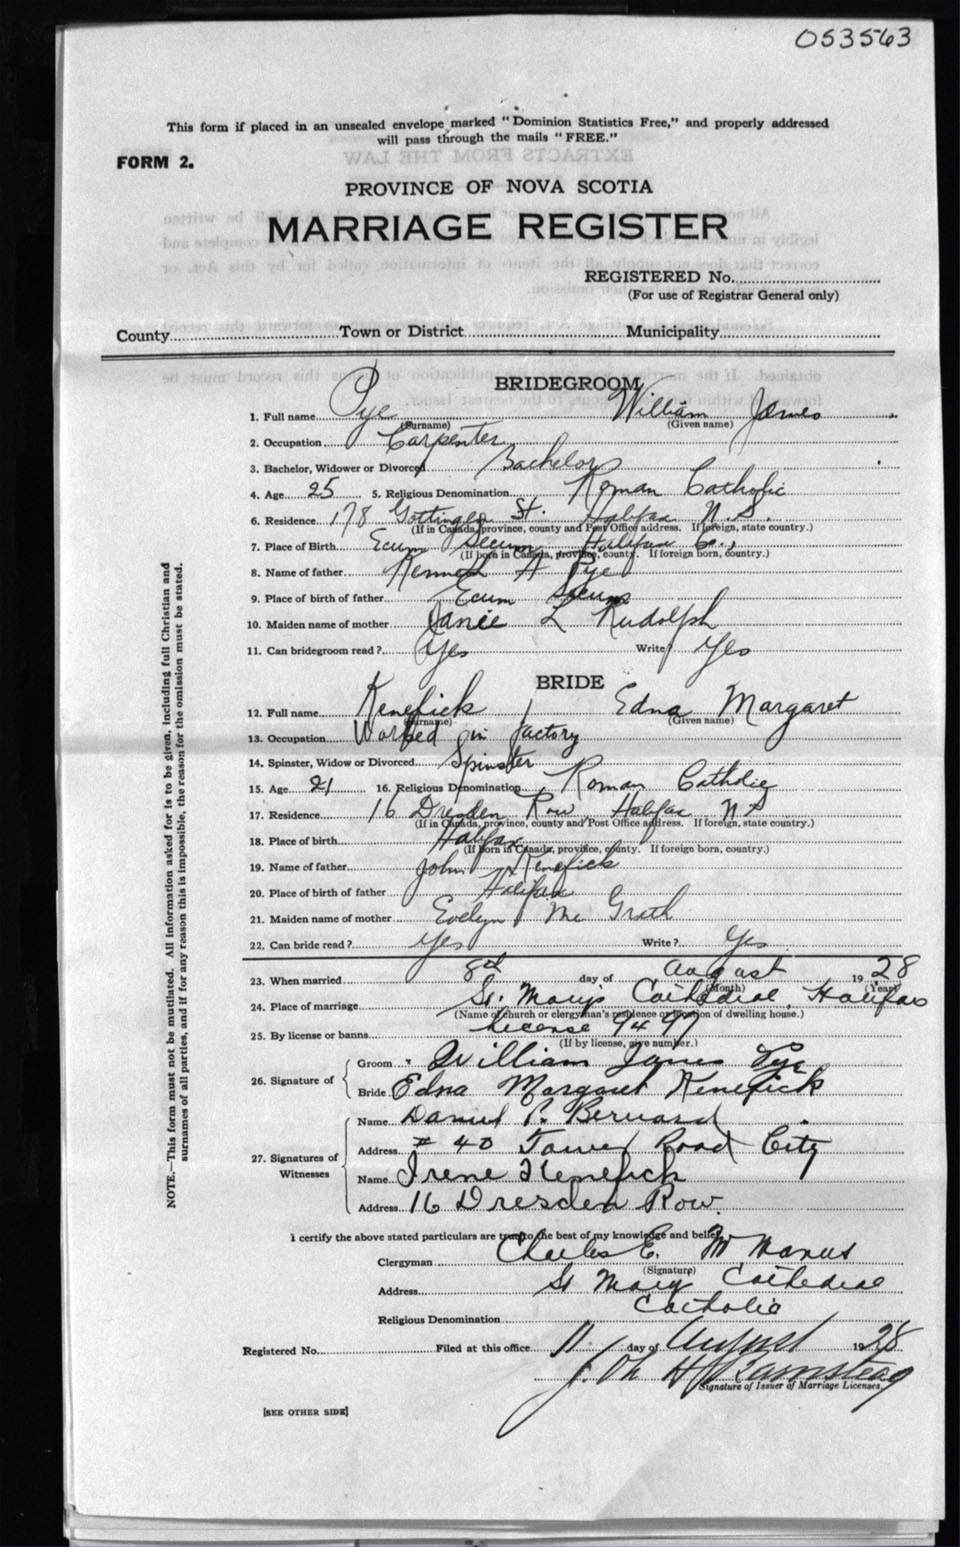 053563
This form if placed in an unsealed envelope marked "Dominion Statistics Free," and properly addressed
will pass through the mails "FREE."
FORM 2.
PROVINCE OF NOVA SCOTIA
MARRIAGE REGISTER
REGISTERED No.
(For use of Registrar General only)
County Town or District Municipality
BRIDEGROOM
1. Full name Pye William James
(Surname) (Given name)
2. Occupation Carpenter
3. Bachelor, Widower or Divorced Bachelor
4. Age 25 5. Religious Denomination Roman Catholic
6. Residence 178 Gottingen St. Halifax N.S.
(If in Canada, province, county and Post Office address. If foreign, state country.)
7. Place of Birth Ecum Secum Halifax Co.,
(If born in Canada, province, county. If foreign born, country.)
8. Name of father Kenneth A Pye
9. Place of birth of father Ecum Secum
10. Maiden name of mother Janie L Rudolph
11. Can bridegroom read? Yes Write? Yes
BRIDE
12. Full name Kenefick Edna Margaret
(Surname) (Given name)
13. Occupation Worked in factory
14. Spinster, Widow or Divorced Spinster
15. Age 21 16. Religious Denomination Roman Catholic
17. Residence 16 Dresden Row Halifax N S
(If in Canada, province, county and Post Office address. If foreign, state country.)
18. Place of birth Halifax
(If born in Canada, province, county. If foreign born, country.)
19. Name of father John Kenefick
20. Place of birth of father Halifax
21. Maiden name of mother Evelyn Mc Grath
22. Can bride read? Yes Write? Yes
23. When married 8th day of August 1928
(Month) (Year)
24. Place of marriage St. Marys Cathedral, Halifax
(Name of church or clergyman's residence or location of dwelling house.)
25. By license or banns License 9497
(If by license, give number.)
26. Signature of Groom William James Pye
Bride Edna Margaret Kenefick
27. Signatures of Witnesses
Name Daniel P. Bernard
Address # 40 Tower Road City
Name Irene Kenefick
Address 16 Dresden Row.
I certify the above stated particulars are true to the best of my knowledge and belief.
Clergyman Charles E. Mc Manus
(Signature)
Address St Marys Cathedral
Religious Denomination Catholic
Registered No. Filed at this office 11 day of August 1928
Signature of Issuer of Marriage Licenses.
[SEE OTHER SIDE]
NOTE.—This form must not be mutilated. All information asked for is to be given, including full Christian and
surnames of all parties, and if for any reason this is impossible, the reason for the omission must be stated.